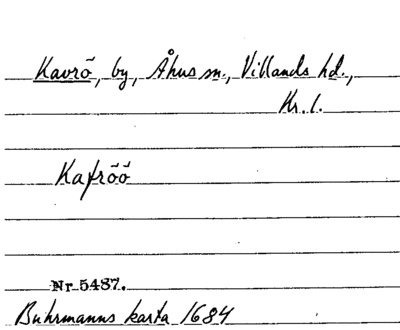 Kavrö, by, Åhus sn., Villands hd.,
Kr. l.
Kafröö
Nr 5487.
Buhrmanns karta 1684